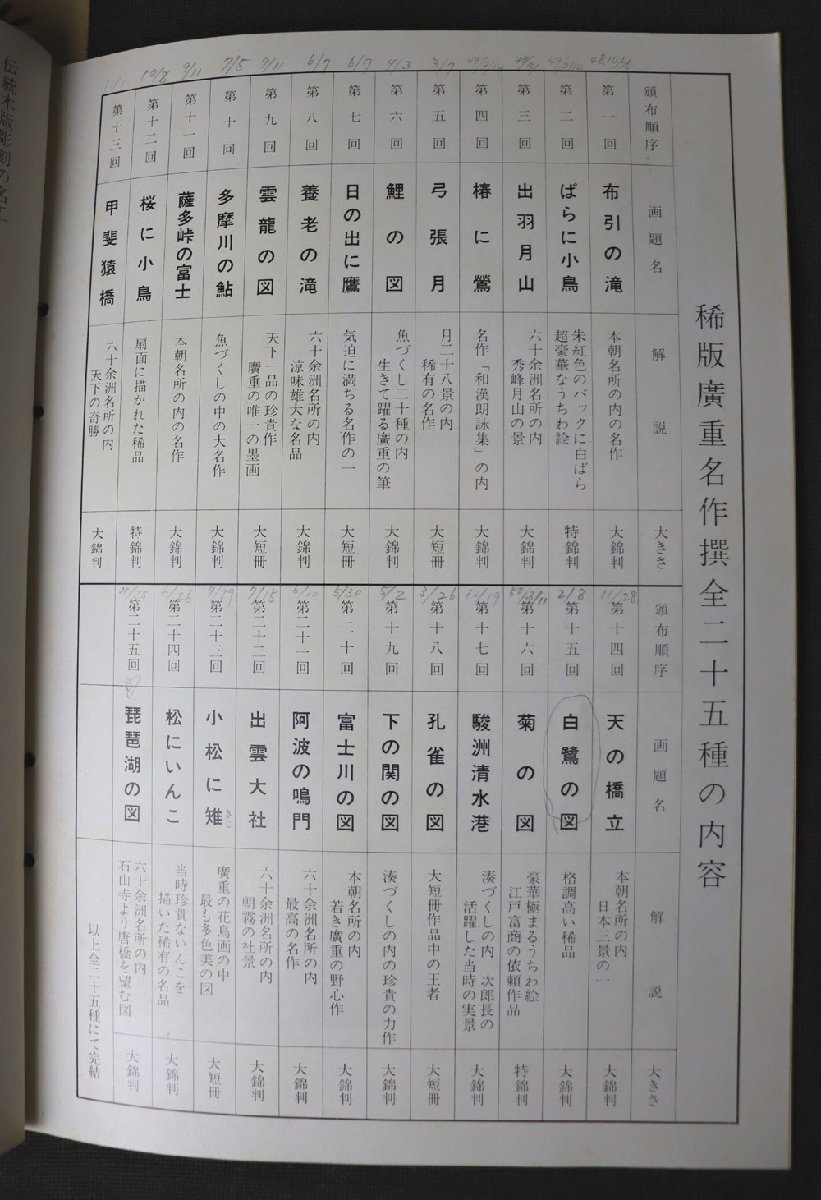 稀版廣重名作撰全二十五種の内容
頒布順序
画題名
解説
大きさ
第一回
布引の滝
本朝名所の内の名作
大錦判
第二回
ばらに小鳥
朱紅色のバックに白ばら
超豪華なうちわ絵
特錦判
第三回
出羽月山
六十余洲名所の内
秀峰月山の景
大錦判
第四回
椿に鶯
名作「和漢朗詠集」の内
大錦判
第五回
弓張月
月二十八景の内
稀有の名作
大短冊
第六回
鯉の図
魚づくし二十種の内
生きて躍る廣重の筆
大錦判
第七回
日の出に鷹
気迫に満ちる名作の一
大短冊
第八回
養老の滝
六十余洲名所の内
涼味雄大な名品
大錦判
第九回
雲龍の図
天下一品の珍貴作
廣重の唯一の墨画
大短冊
第十回
多摩川の鮎
魚づくしの中の大名作
大錦判
第十一回
薩多峠の富士
本朝名所の内の名作
大錦判
第十二回
桜に小鳥
扇面に描かれた稀品
特錦判
第十三回
甲斐猿橋
六十余洲名所の内
天下の奇勝
大錦判
頒布順序
画題名
解説
大きさ
第十四回
天の橋立
本朝名所の内
日本三景の一
大錦判
第十五回
白鷺の図
格調高い稀品
大錦判
第十六回
菊の図
豪華極まるうちわ絵
江戸富商の依頼作品
特錦判
第十七回
駿洲清水港
湊づくしの内 次郎長の
活躍した当時の実景
大錦判
第十八回
孔雀の図
大短冊作品中の王者
大短冊
第十九回
下の関の図
湊づくしの内の珍貴の力作
大錦判
第二十回
富士川の図
本朝名所の内
若き廣重の野心作
大錦判
第二十一回
阿波の鳴門
六十余洲名所の内
最高の名作
大錦判
第二十二回
出雲大社
六十余洲名所の内
朝霧の社景
大錦判
第二十三回
小松に雉
きじ
廣重の花鳥画の中
最も多色美の図
大短冊
第二十四回
松にいんこ
当時珍貴ないんこを
描いた稀有の名品
大錦判
第二十五回
琵琶湖の図
六十余洲名所の内
石山寺より唐橋を望む図
大錦判
以上全二十五種にて完結
伝統木版彫刻の名工